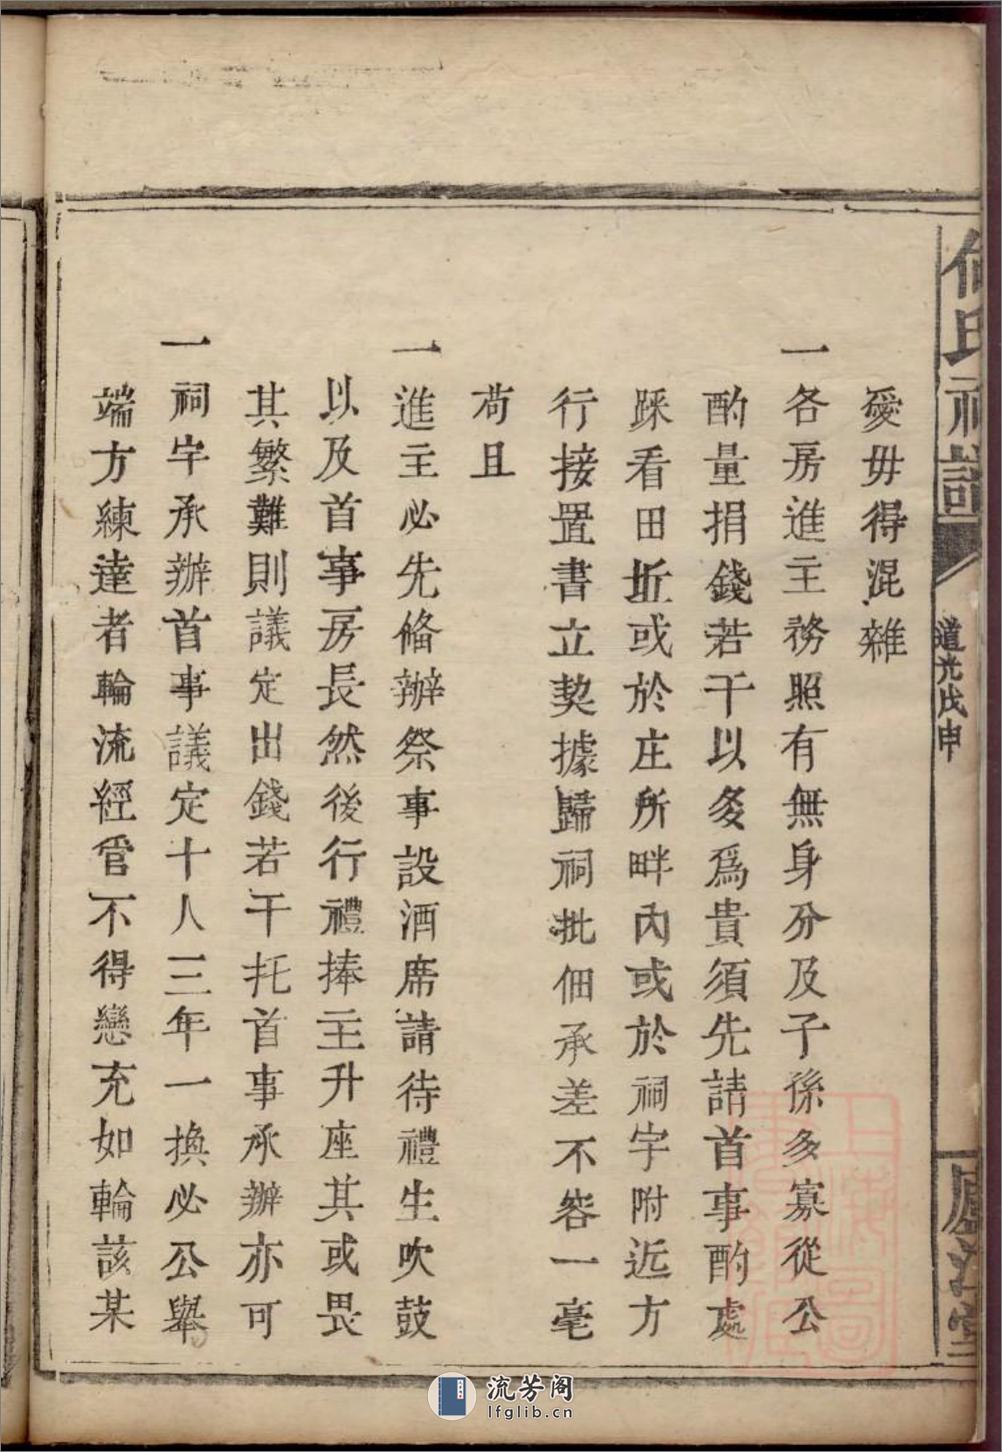 何氏祠譜
道光戊申
廬江堂
愛毋得混雜
一各房進主務照有無身分及子孫多寡從公
酌量捐錢若干以多爲貴須先請首事酌處
踩看田坵或於庄所畔內或於祠宇附近方
行接置書立契據歸祠批佃承差不容一毫
苟且
一進主必先俻辦祭事設酒席請待禮生吹鼓
以及首事房長然後行禮捧主升座其或畏
其繁難則議定出錢若干托首事承辦亦可
一祠宇承辦首事議定十人三年一換必公舉
端方練達者輪流經管不得戀充如輪該某
上海圖書館藏
流芳阁
lfglib.cn